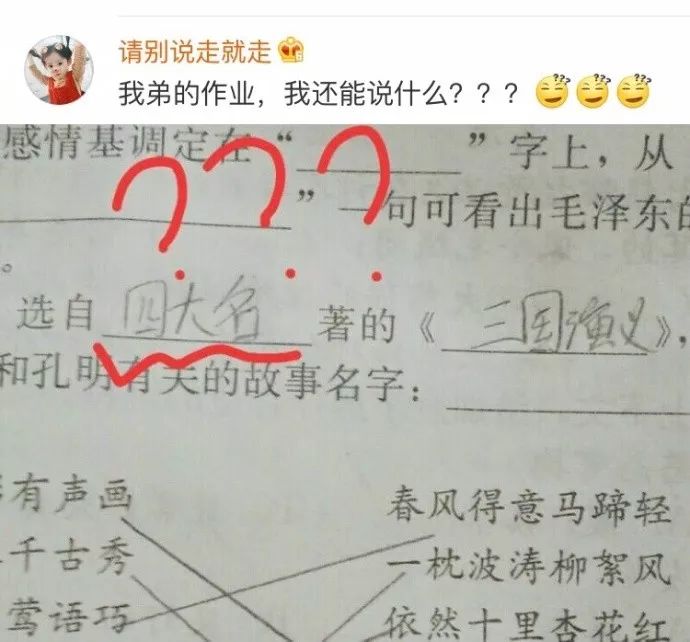 请别说走就走
我弟的作业，我还能说什么？？？
感情基调定在“______”字上，从
______”一句可看出毛泽东的
。
选自四大名著的《三国演义》，
和孔明有关的故事名字：______
有声画
春风得意马蹄轻
千古秀
一枕波涛柳絮风
莺语巧
依然十里杏花红
???